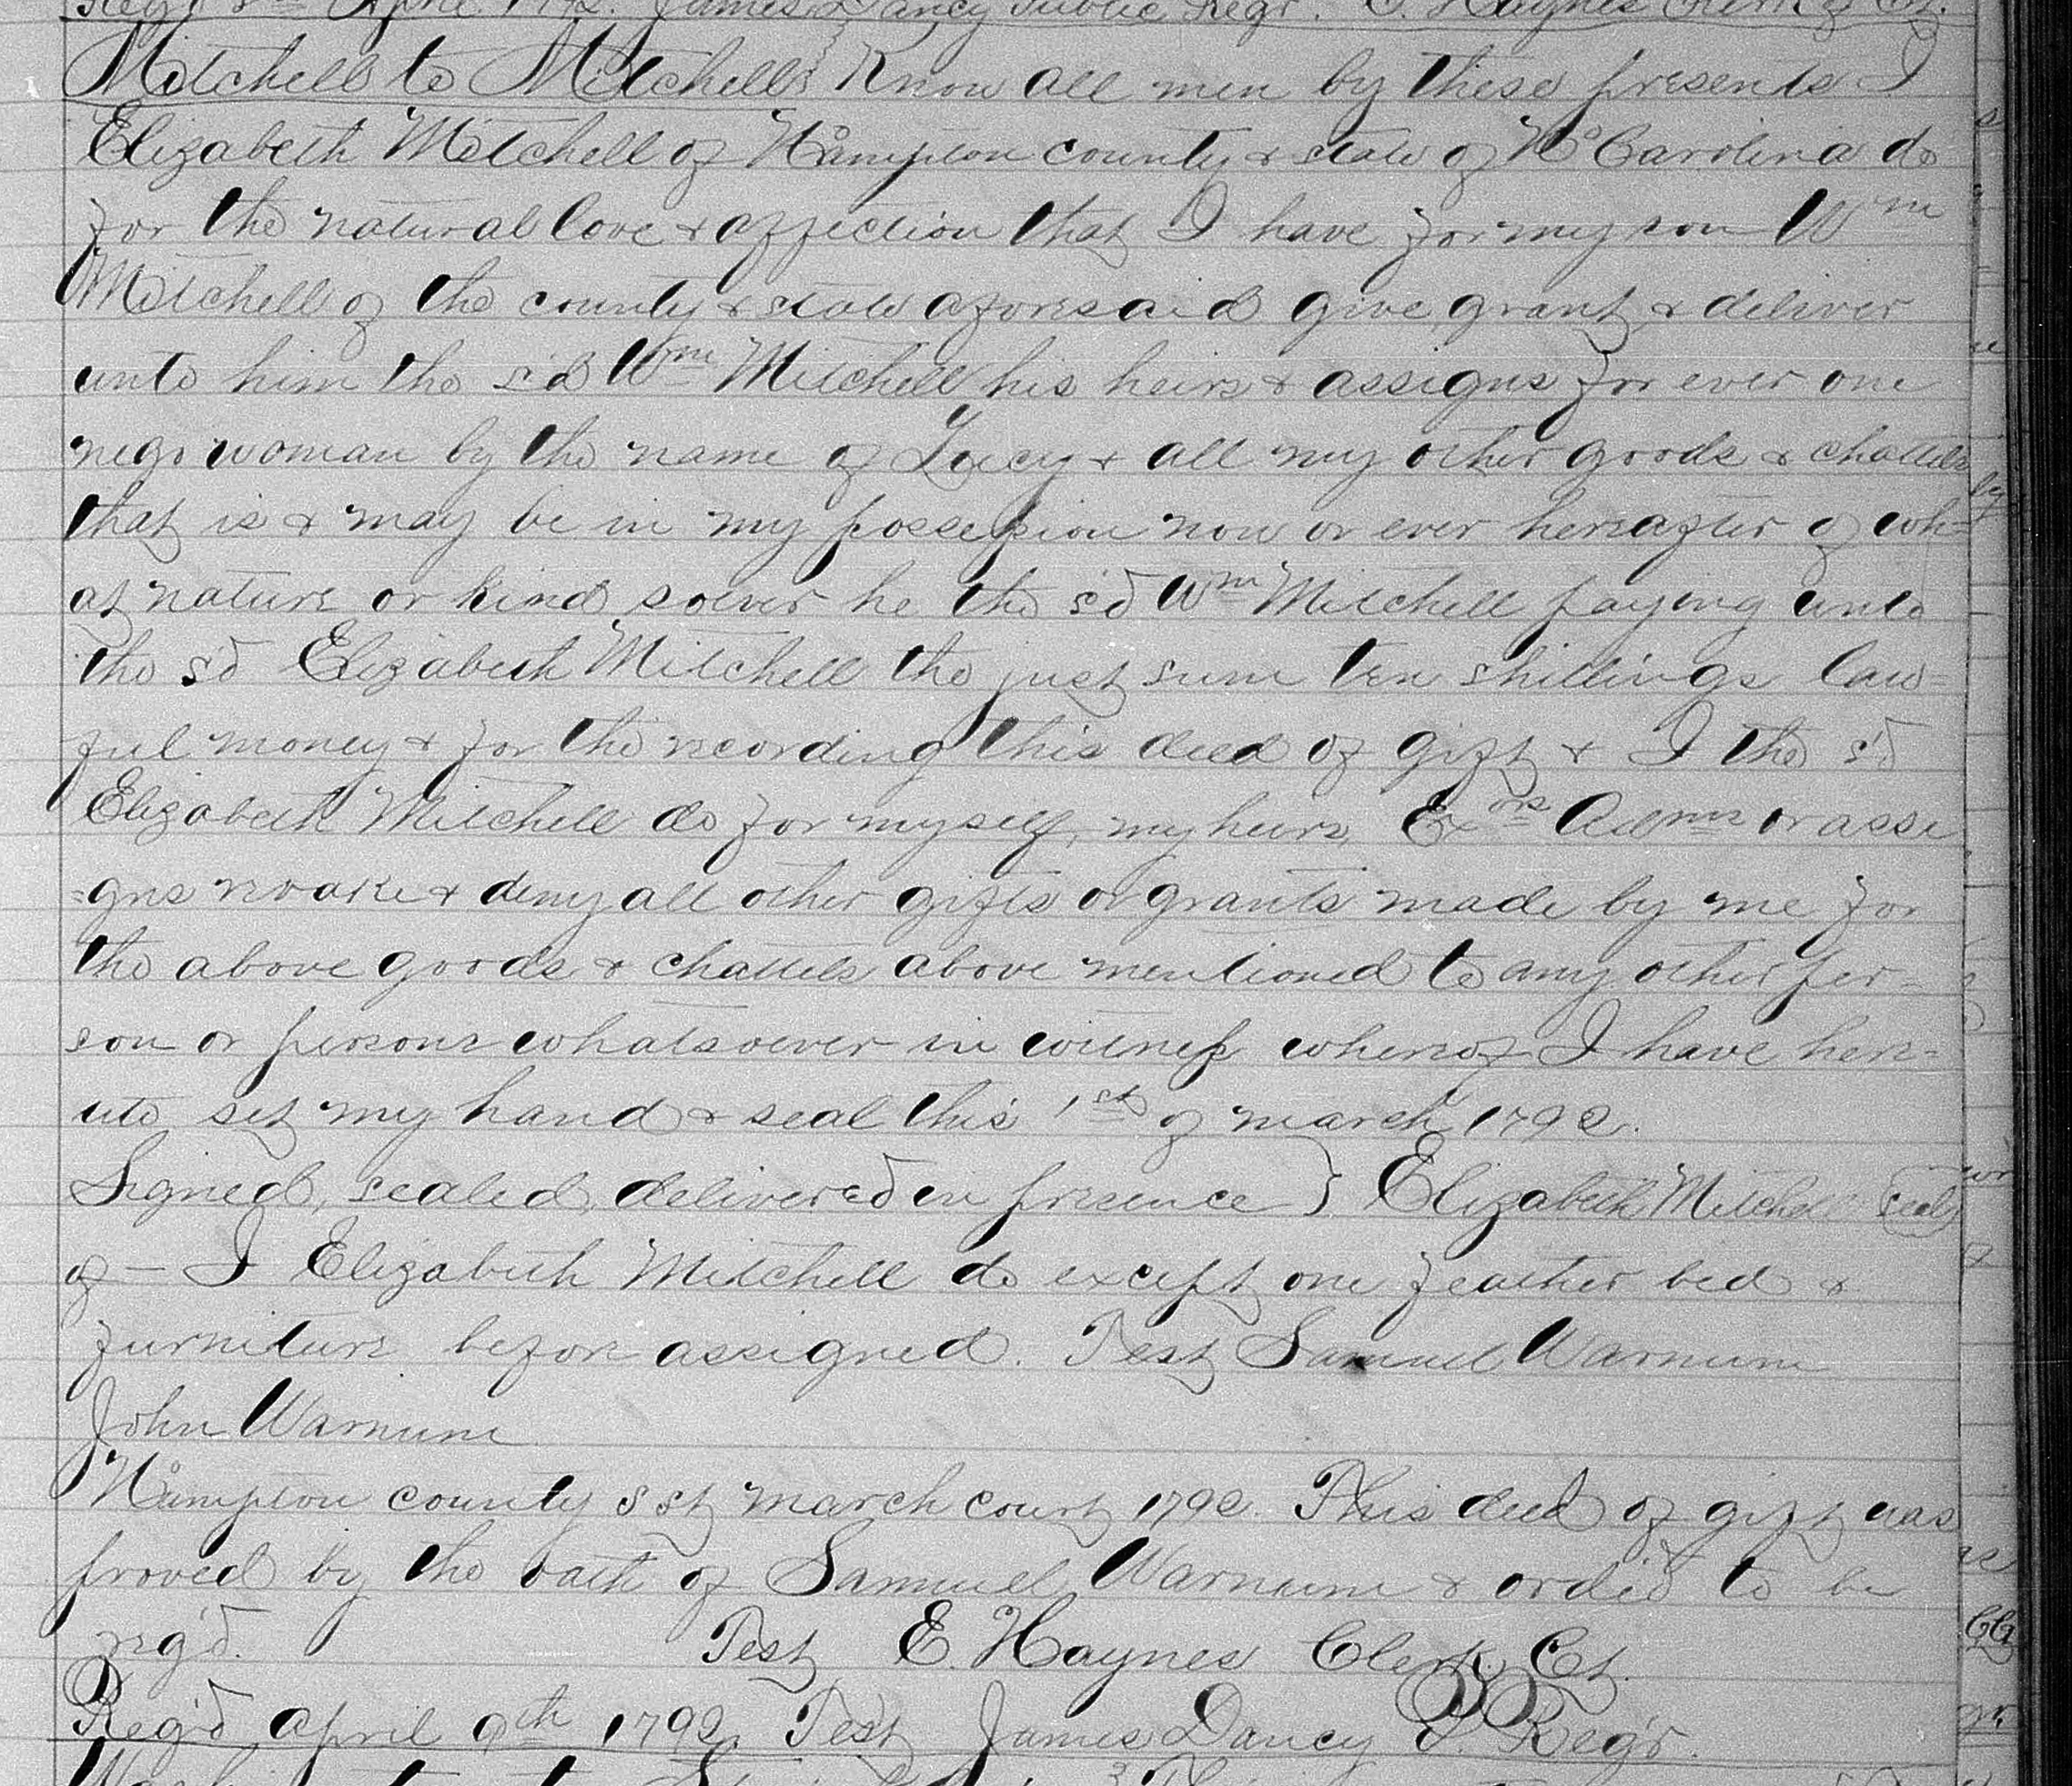 Reg'd April 1792. James Dancy Public Regr. E. Haynes Clerk of Ct.
Mitchell to Mitchell } Know all men by these presents I
Elizabeth Mitchell of Hampton county & state of No Carolina do
for the natural love & affection that I have for my son Wm
Mitchell of the county & state aforesaid give, grant, & deliver
unto him the s'd Wm Mitchell his heirs & assigns for ever one
nego woman by the name of Lucy & all my other goods & chattels
that is & may be in my possession now or ever hereafter of wh-
at nature or kind soever he the s'd Wm Mitchell paying unto
the s'd Elizabeth Mitchell the just sum ten shillings law=
ful money & for the recording this deed of gift & I the s'd
Elizabeth Mitchell do for myself, my heirs, Exrs Admrs or assi
=gns revoke & deny all other gifts or grants made by me for
the above goods & chattels above mentioned to any other per-
son or persons whatsoever in witness whereof I have here-
uto set my hand & seal this 1st of march 1792.
Signed, sealed, delivered in presence } Elizabeth Mitchell (seal)
of — I Elizabeth Mitchell do except one feather bed &
furniture before assigned. Test Samuel Warnum
John Warnum
Hampton county sst march court 1792. This deed of gift was
proved by the oath of Samuel Warnum & ord'ed to be
reg'd. Test E. Haynes Clerk Ct.
Reg'd April 9th 1792. Test James Dancy P. Reg'r.